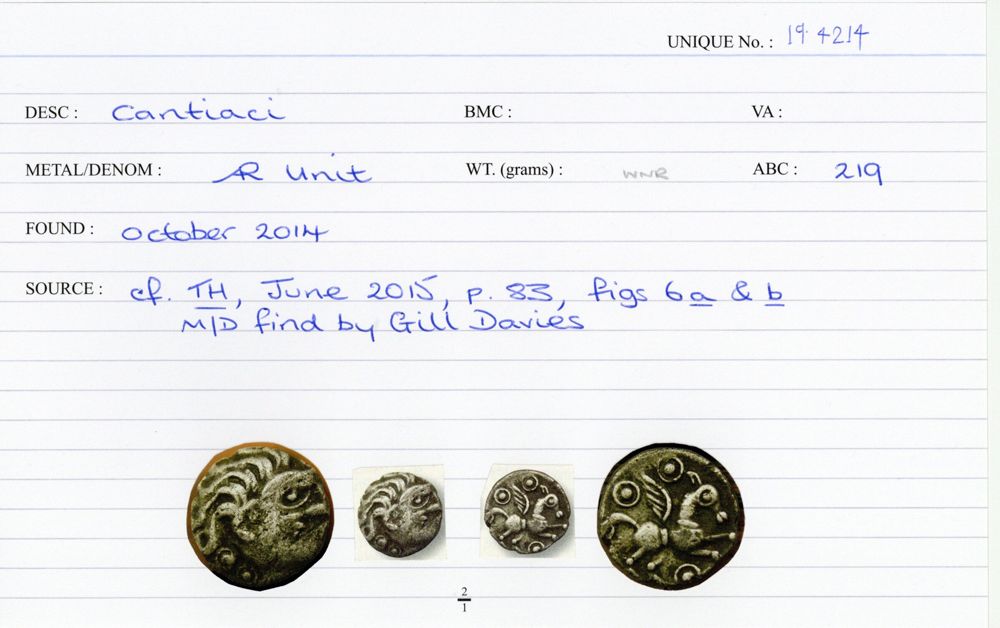 UNIQUE No. : 19.4214
DESC : Cantiaci BMC : VA :
METAL/DENOM : AR Unit WT. (grams) : WNR ABC : 219
FOUND : October 2014
SOURCE : cf. TH, June 2015, p. 83, figs 6a & b
M/D find by Gill Davies
2
1